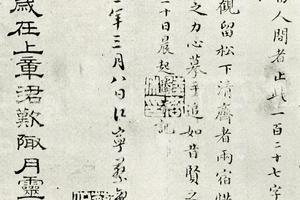 人間者止此一百二十七字
觀留松下清齋者兩宿惜
之力心摹手追如昔賢之
二十日展起 記
二年三月八日江寧蔡
歲在上章涒歎陬月靈